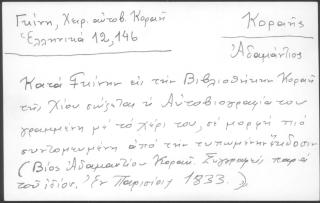 Γκίνη, Χειρ. αὐτοβ. Κοραῆ
Ἑλληνικά 12, 146
Κοραῆς
Ἀδαμάντιος
Κατά Γκίνην εἰς τήν Βιβλιοθήκην Κοραῆ
τῆς Χίου σώζεται ἡ Αὐτοβιογραφία του
γραμμένη μέ τό χέρι του, σέ μορφή πιό
συντομευμένη ἀπό τήν τυπωμένην ἔκδοσιν
(Βίος Ἀδαμαντίου Κοραῆ. Συγγραφείς παρά
τοῦ ἰδίου. Ἐν Παρισίοις 1833.)